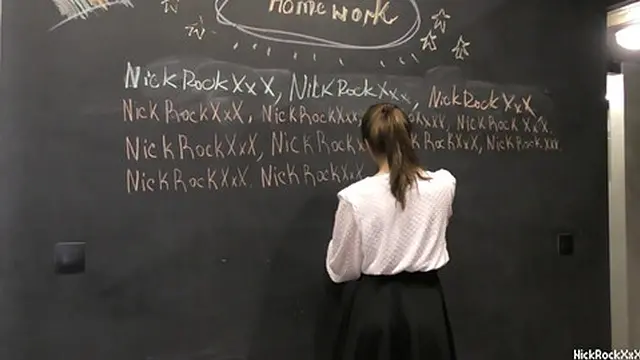 Homework
NickRockXxX, NickRockXxX, NickRockXxX
NickRockXxX, NickRockXxX, NickRockXxX.
NickRockXxX, NickRockXxX, NickRockXxX.
NickRockXxX. NickRockXxX
NickRockXxX